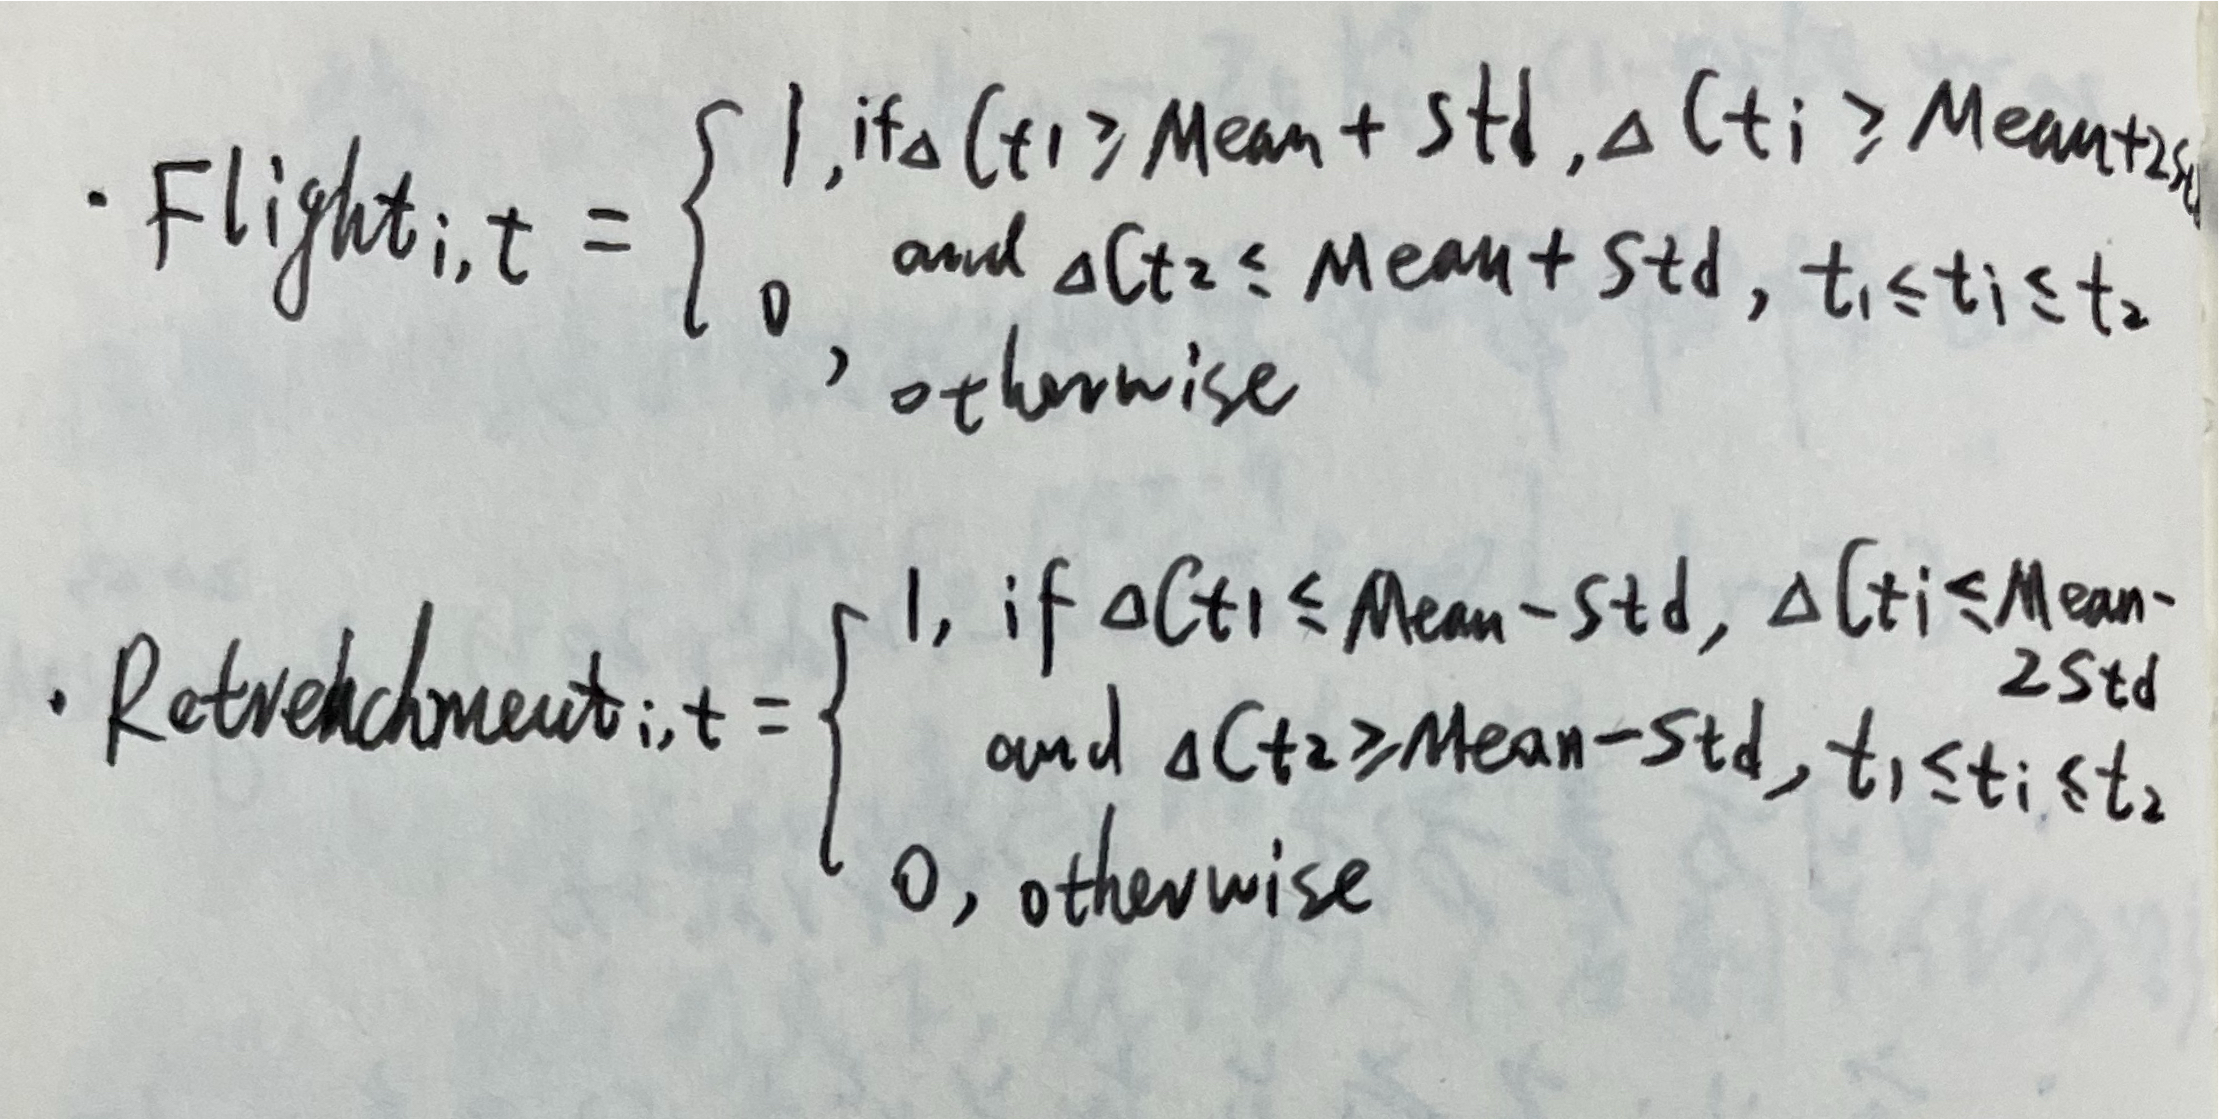 · Flight i,t = { 1, if ΔCt1 ≥ Mean + Std, ΔCti ≥ Mean+2Std
and ΔCt2 ≤ Mean + Std, t1 ≤ ti ≤ t2
0, otherwise
· Retrenchment i,t = { 1, if ΔCt1 ≤ Mean - Std, ΔCti ≤ Mean-
2Std
and ΔCt2 ≥ Mean - Std, t1 ≤ ti ≤ t2
0, otherwise